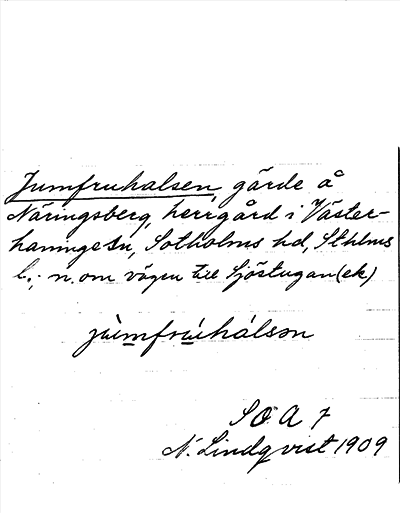 Jumfruhalsen, gärde å
Näringsberg, herrgård i Väster-
haninge sn, Sotholms hd, Sthlms
l.; n. om vägen till Sjöstugan (ek)
jùmfrúhálsən
SOA 7
N. Lindqvist 1909